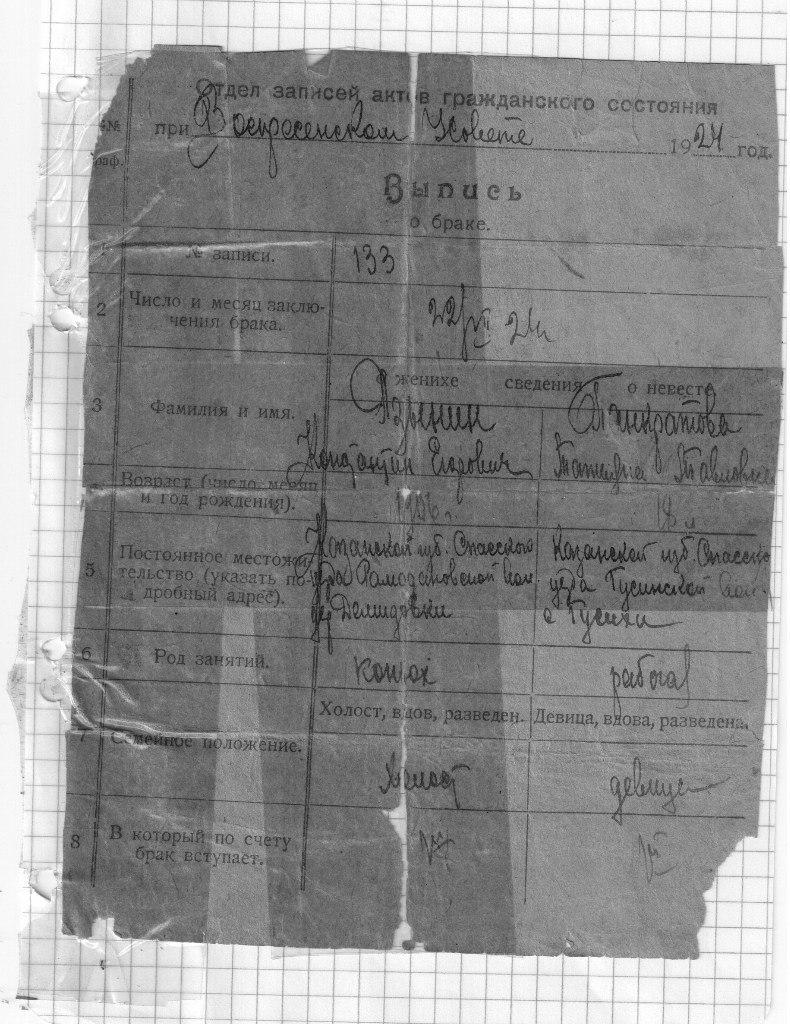 Отдел записей актов гражданского состояния
при Воскресенском 1924 год.
№
раф.
Выпись
о браке.
№ записи. 133
2 Число и месяц заклю-
чения брака. 22/VII 24
о женихе сведения о невесте
3 Фамилия и имя.
Язынин Панкратова
Константин Егорович Татьяна Павловна
Возраст (число, месяц
и год рождения). 1906 г. 18 л
5 Постоянное местожи-
тельство (указать по-
дробный адрес).
Казанской губ. Спасского Казанской губ. Спасско
уезда Рамодановской вол. уезда Гусинской вол.
дер Демидовки с Гусиха
6 Род занятий. конюх
Холост, вдов, разведен. Девица, вдова, разведена.
7 Семейное положение.
холост девица
8 В который по счету
брак вступает.